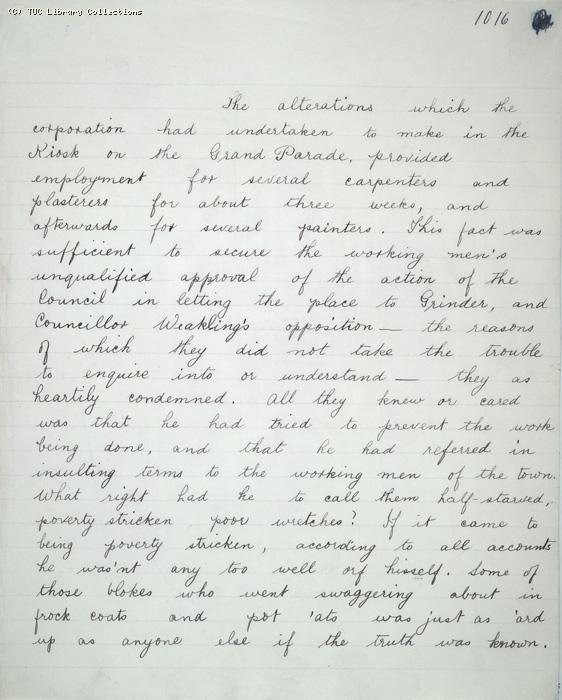 (C) TUC Library Collections
1016
The alterations which the
corporation had undertaken to make in the
Kiosk on the Grand Parade, provided
employment for several carpenters and
plasterers for about three weeks, and
afterwards for several painters. This fact was
sufficient to secure the working men's
unqualified approval of the action of the
Council in letting the place to Grinder, and
Councillor Weakling's opposition — the reasons
of which they did not take the trouble
to enquire into or understand — they as
heartily condemned. All they knew or cared
was that he had tried to prevent the work
being done, and that he had referred in
insulting terms to the working men of the town.
What right had he to call them half-starved,
poverty stricken poor wretches? If it came to
being poverty stricken, according to all accounts
he was'nt any too well orf hisself. Some of
those blokes who went swaggering about in
frock coats and pot 'ats was just as 'ard
up as anyone else if the truth was known.